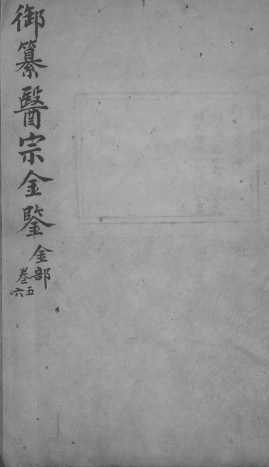 御纂醫宗金鑒
金部
卷五
六